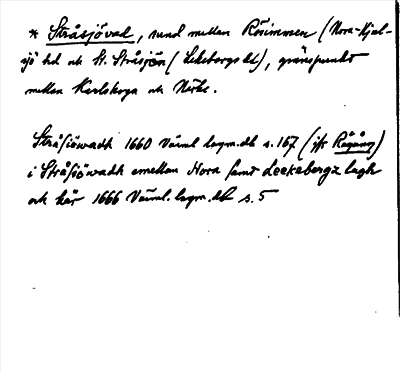 * Stråsjövad, sund mellan Rösimmen (Nora-Hjul-
sjö hd och St. Stråsjön (Lekebergs hd), gränspunkt
mellan Karlskoga och Närke.
Stråsiöwadh 1660 Värml lagm.db s. 167 (jfr Rågång)
i Stråsiöwadh emellan Nora samt Leekebergz lagh
och här 1666 Värml. lagm.db s. 5